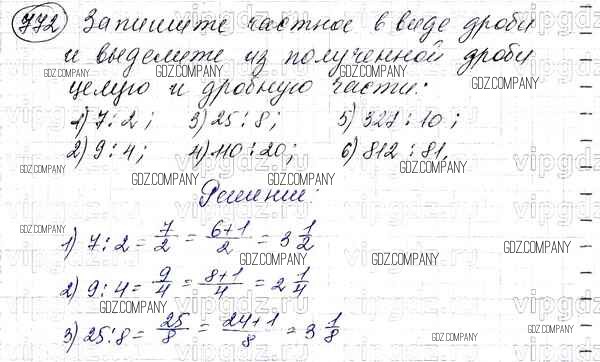 772 Запишите частное в виде дроби
и выделите из полученной дроби
целую и дробную части:
1) 7 : 2 ; 3) 25 : 8 ; 5) 327 : 10 ;
2) 9 : 4 ; 4) 110 : 20 ; 6) 812 : 81.
Решение:
1) 7 : 2 = 7/2 = 6+1/2 = 3 1/2
2) 9 : 4 = 9/4 = 8+1/4 = 2 1/4
3) 25 : 8 = 25/8 = 24+1/8 = 3 1/8
GDZ.COMPANY
vipgdz